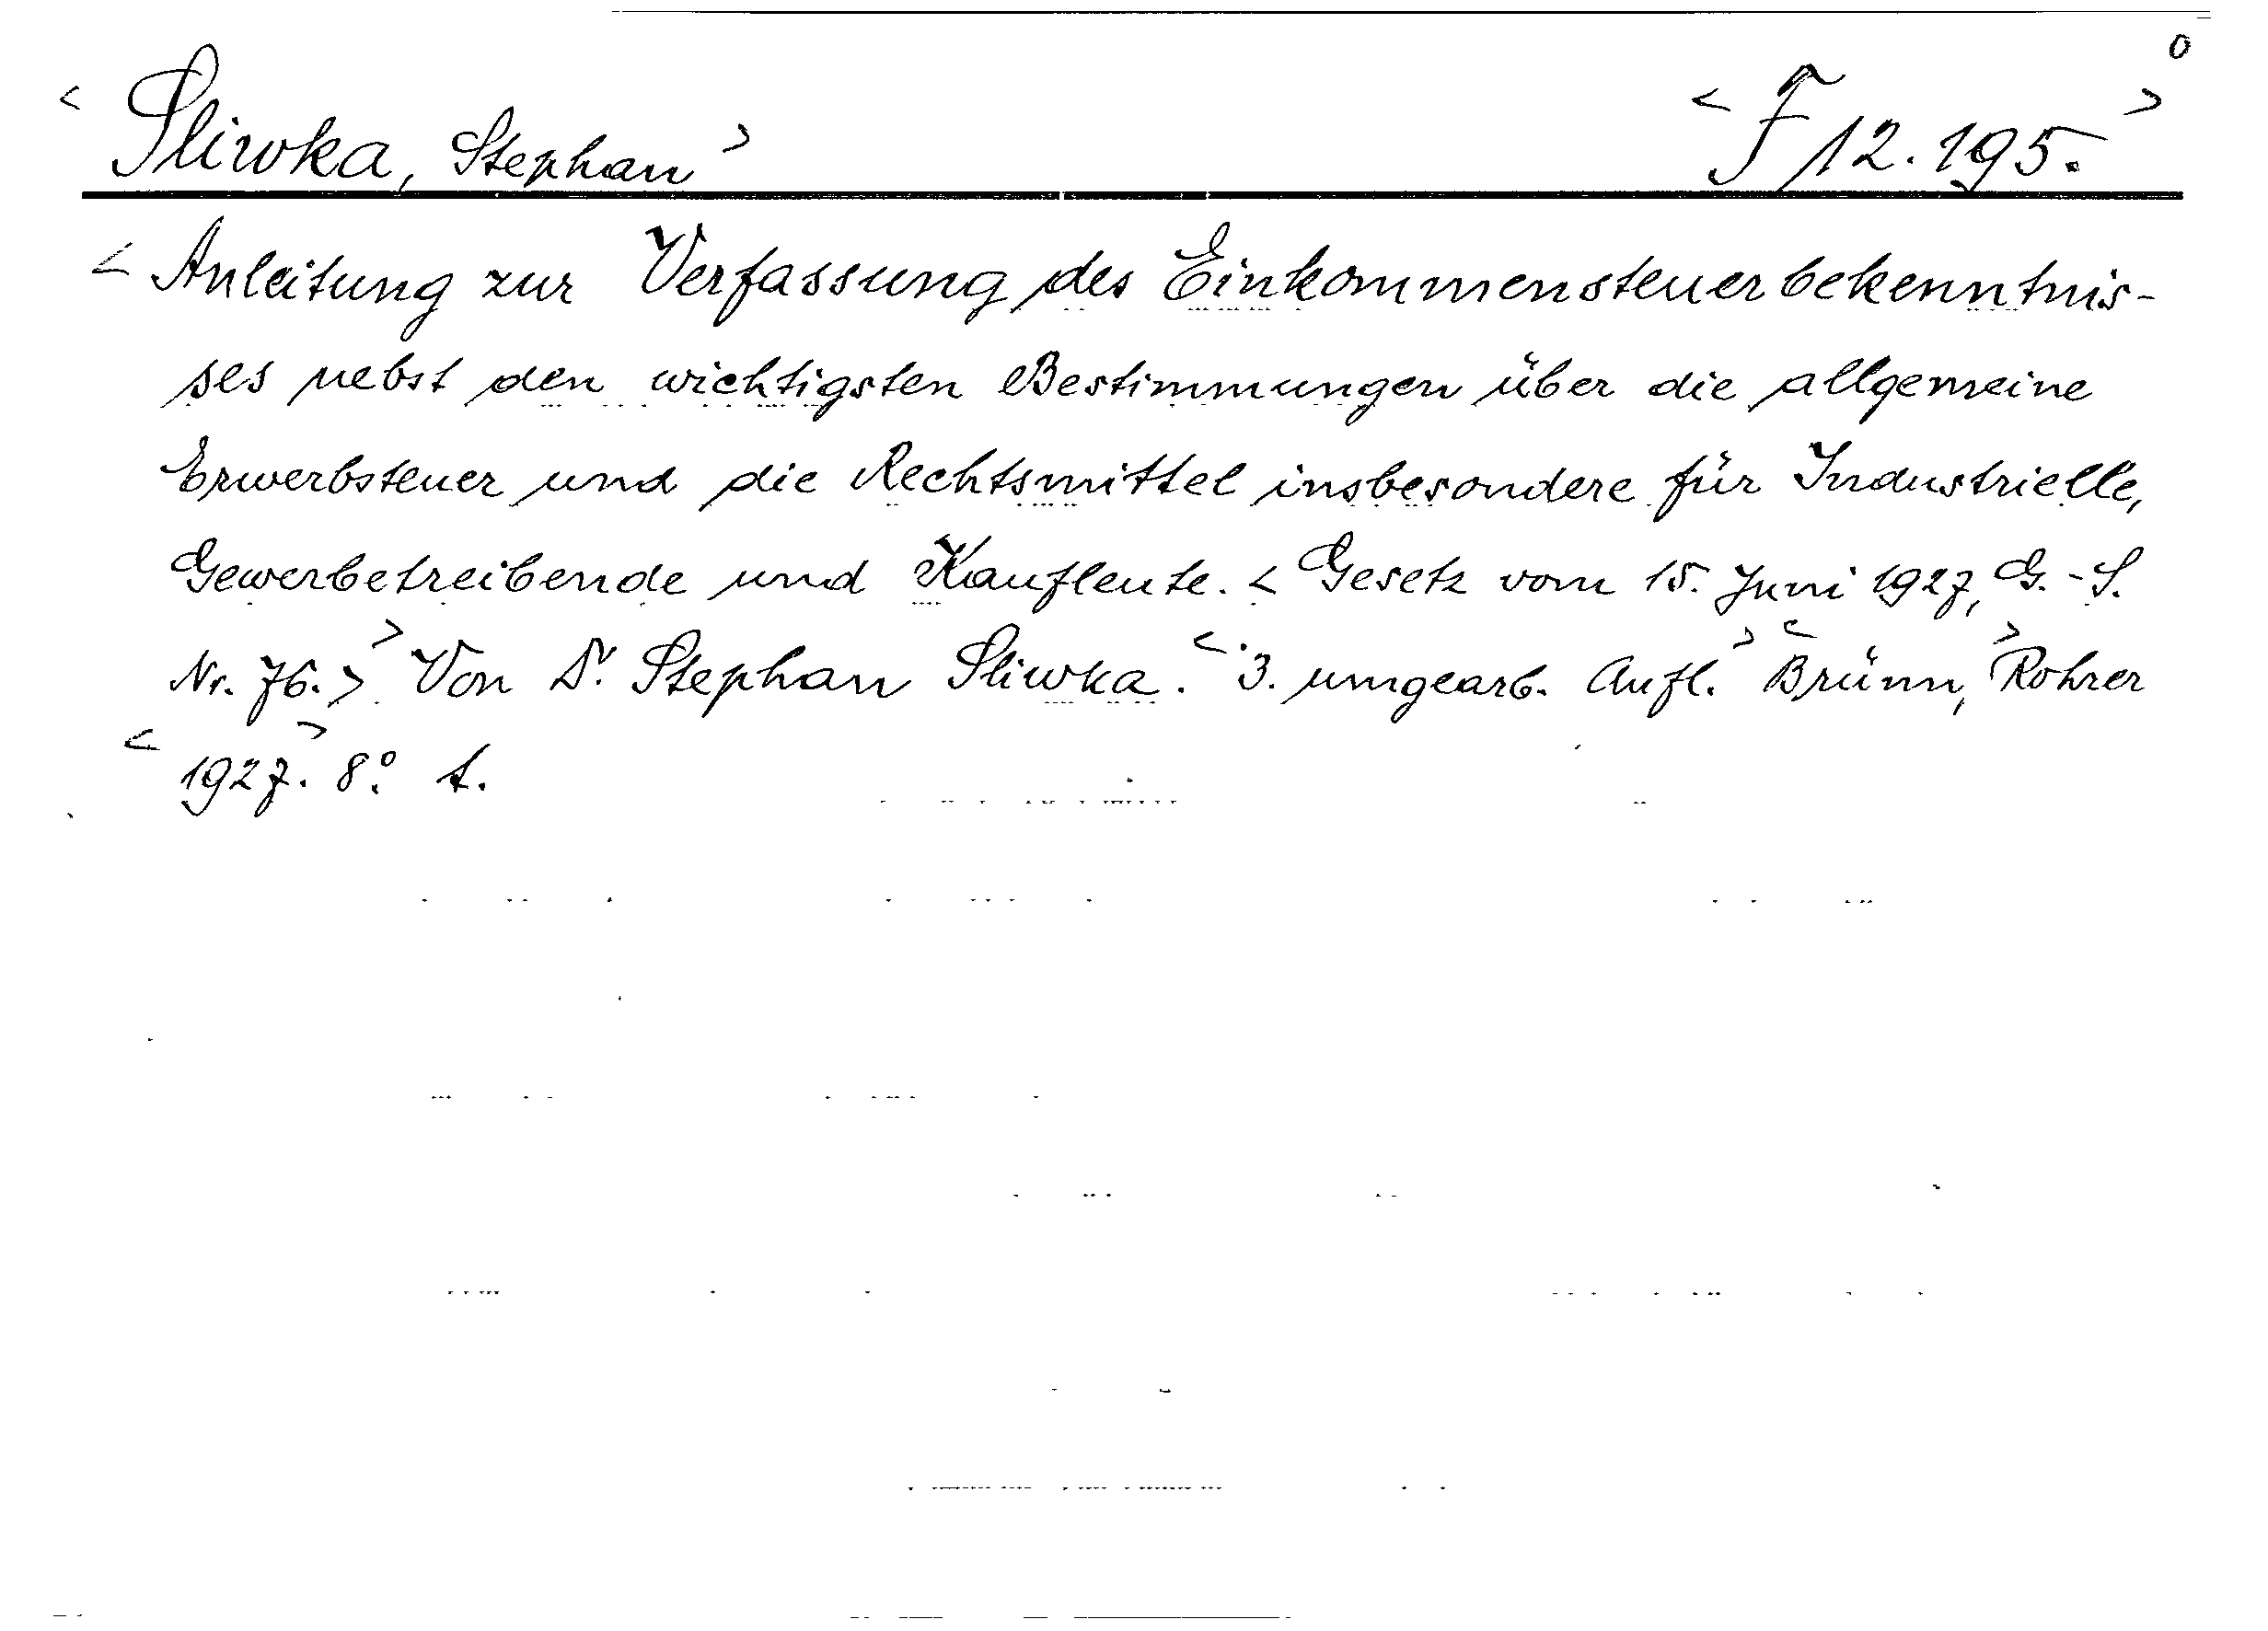 0
<Sliwka, Stephan> <F 12.195.>
<Anleitung zur Verfassung des Einkommensteuerbekenntnis-
ses nebst den wichtigsten Bestimmungen über die allgemeine
Erwerbsteuer und die Rechtsmittel insbesondere für Industrielle,
Gewerbetreibende und Kaufleute. < Gesetz vom 15. Juni 1927, G.-S.
Nr. 76. >> Von Dr. Stephan Sliwka. <3. umgearb. Aufl.> <Brünn,> Rohrer
<1927.> 8°.